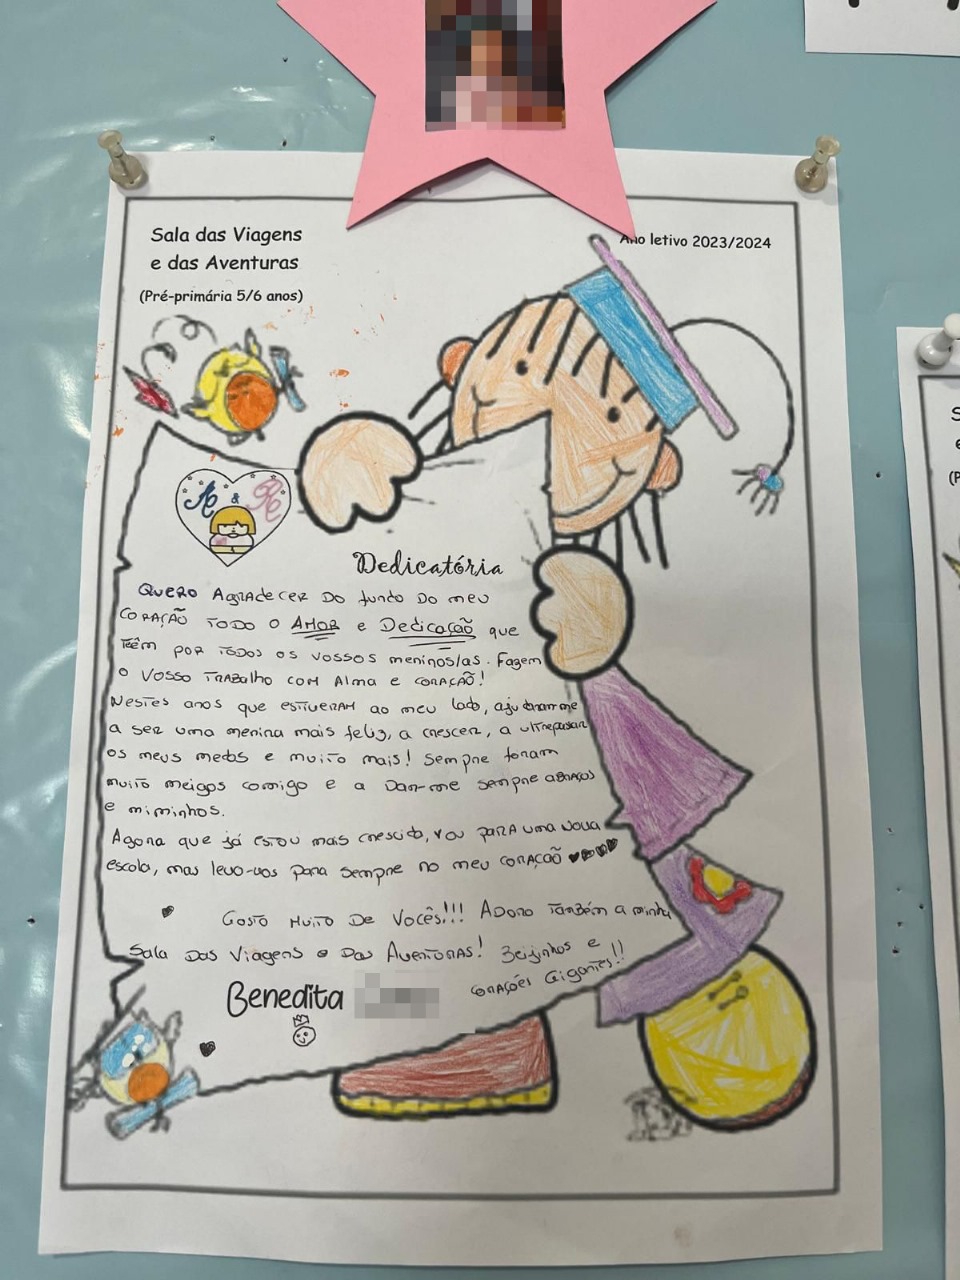 Sala das Viagens
e das Aventuras
(Pré-primária 5/6 anos)
Ano letivo 2023/2024
A & R
Dedicatória
Quero Agradecer do fundo do meu
coração todo o AMOR e Dedicação que
têêm por todos os vossos meninos/as. Fazem
o vosso trabalho com Alma e coração!
Nestes anos que estiveram ao meu lado, ajudaram-me
a ser uma menina mais feliz, a crescer, a ultrapassar
os meus medos e muito mais! Sempre foram
muito meigos comigo e a dar-me sempre abraços
e miminhos.
Agora que já estou mais crescida, vou para uma nova
escola, mas levo-vos para sempre no meu coração
Gosto muito de vocês!!! Adoro também a minha
Sala das Viagens e das Aventuras! Beijinhos e
corações Gigantes!!
Benedita